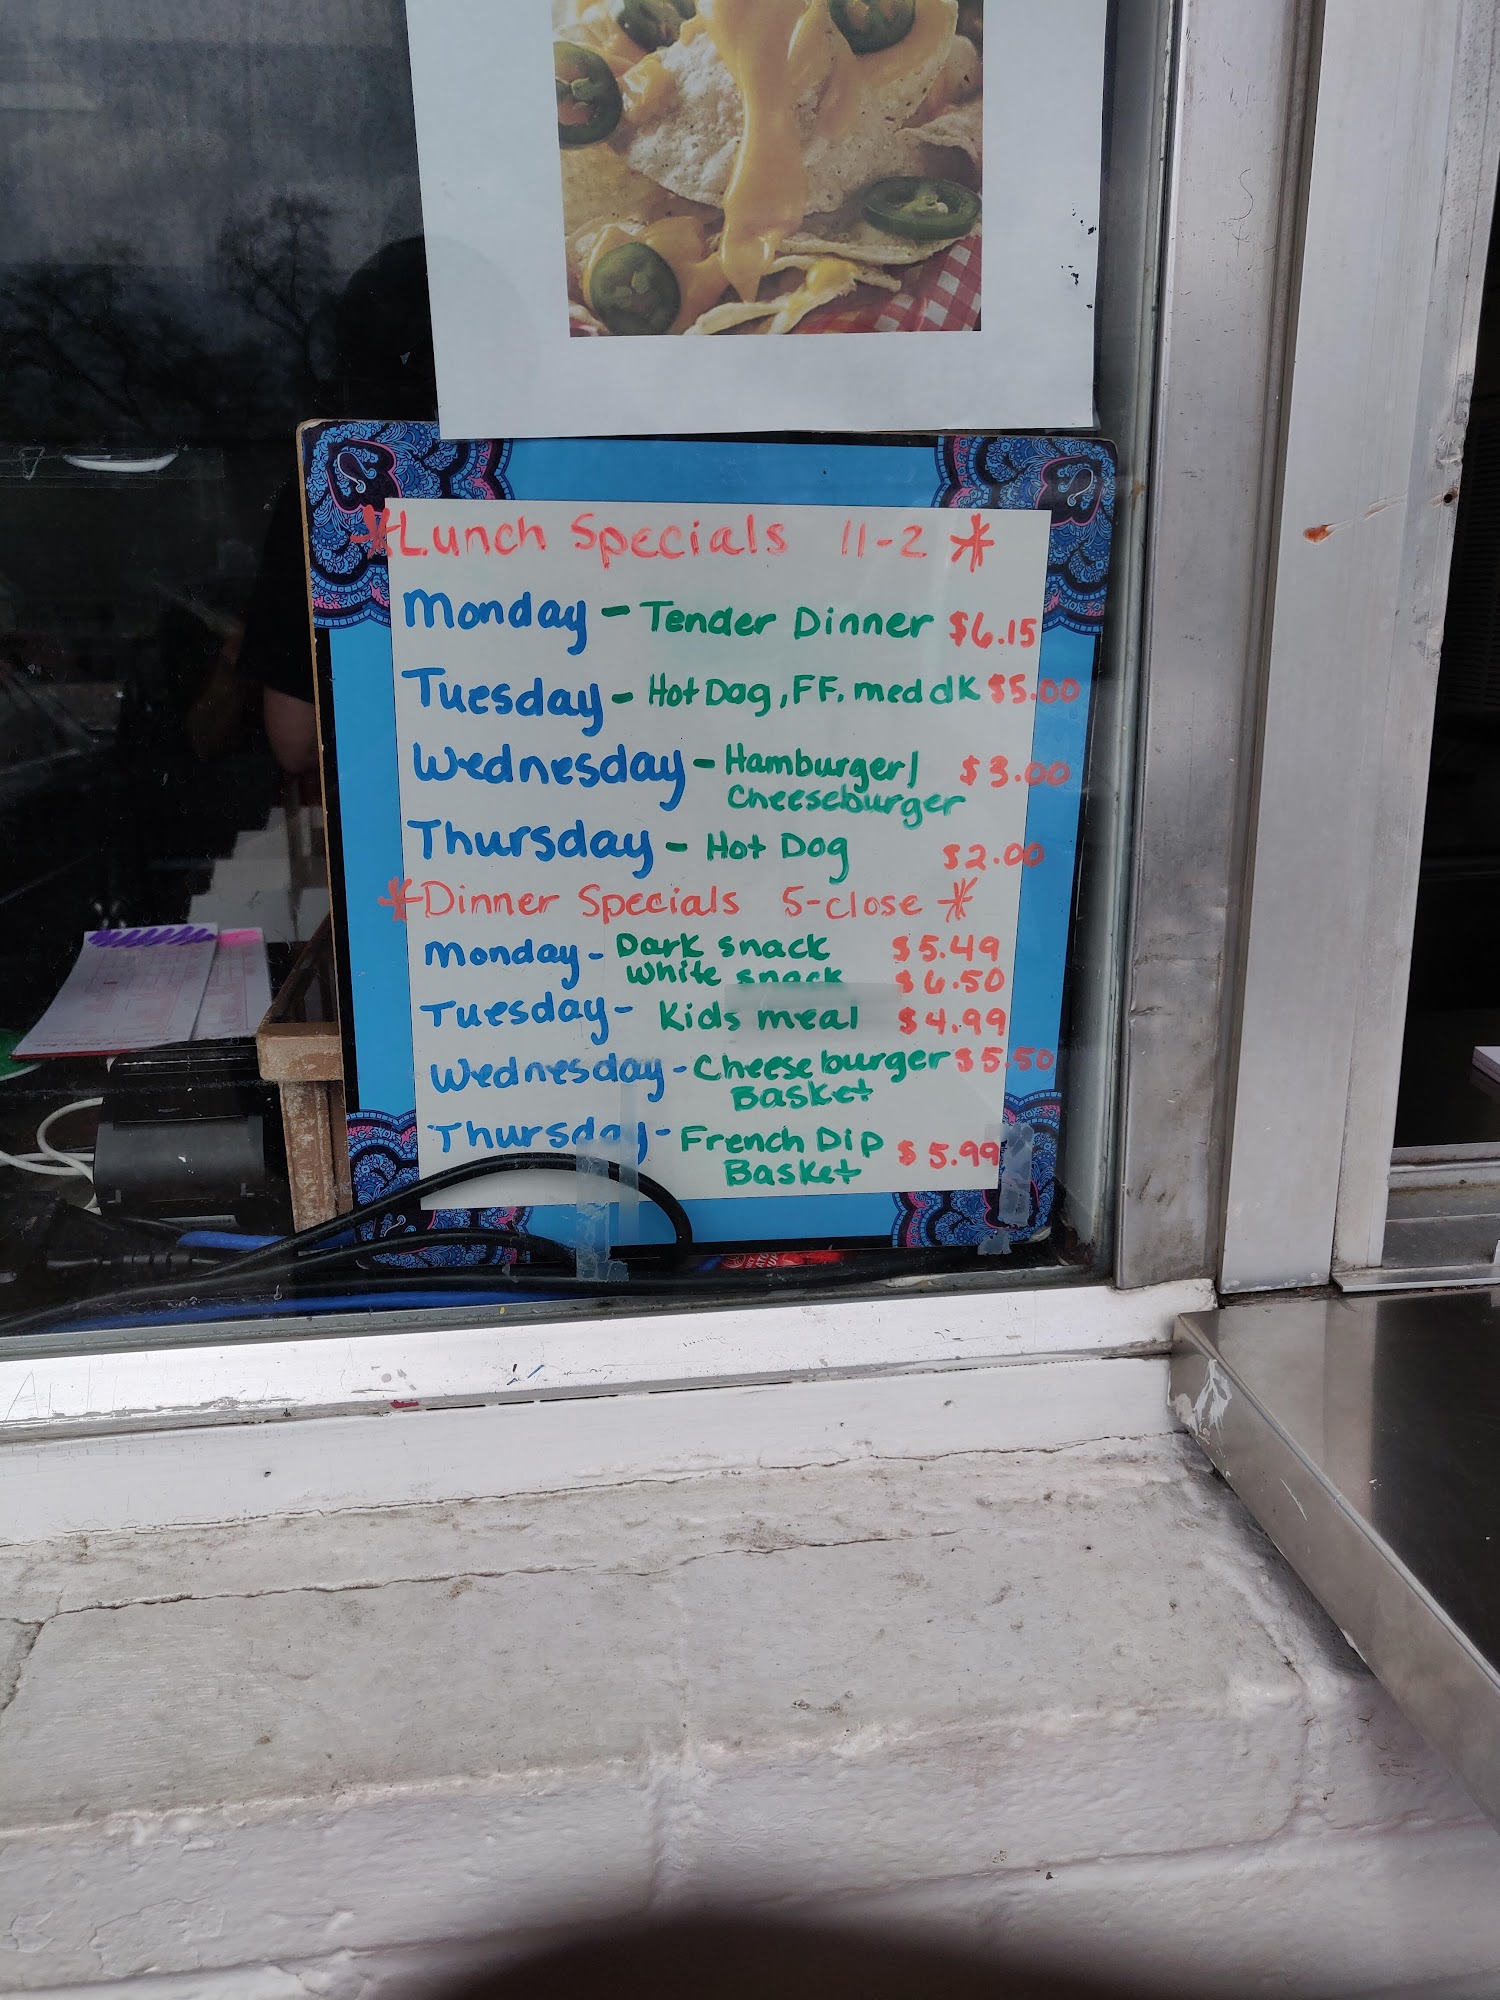 *Lunch Specials 11-2 *
Monday - Tender Dinner $6.15
Tuesday - Hot Dog, FF, med dk $5.00
Wednesday - Hamburger/ $3.00
Cheeseburger
Thursday - Hot Dog $2.00
*Dinner Specials 5-close *
Monday - Dark snack $5.49
White snack $6.50
Tuesday - Kids meal $4.99
Wednesday - Cheese burger $5.50
Basket
Thursday - French Dip $5.99
Basket